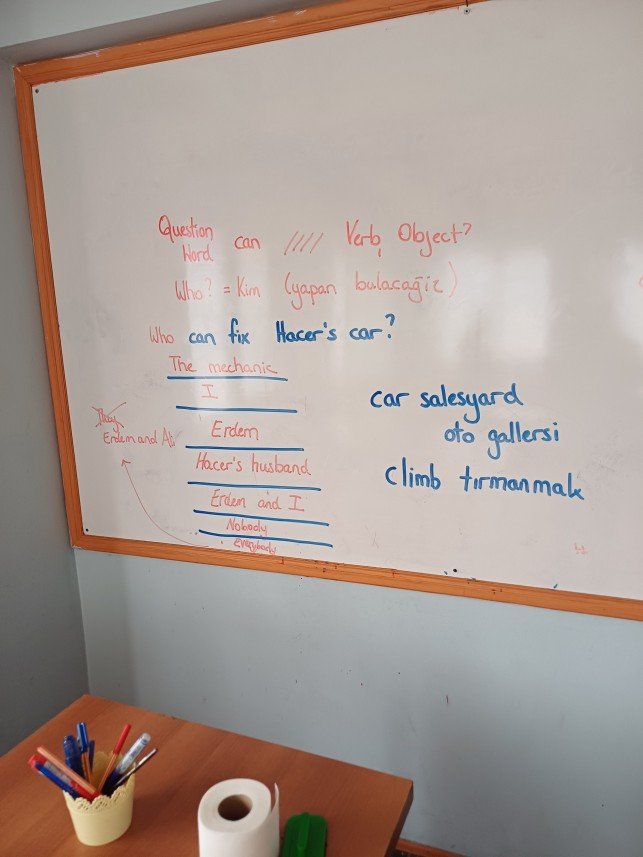 Question Word can //// Verb, Object?
Who? = Kim (yapan bulacağız)
Who can fix Hacer's car?
The mechanic
I
Erdem
Hacer's husband
Erdem and I
Nobody
everybody
Erdem and Ali
car salesyard
oto gallersi
climb tırmanmak